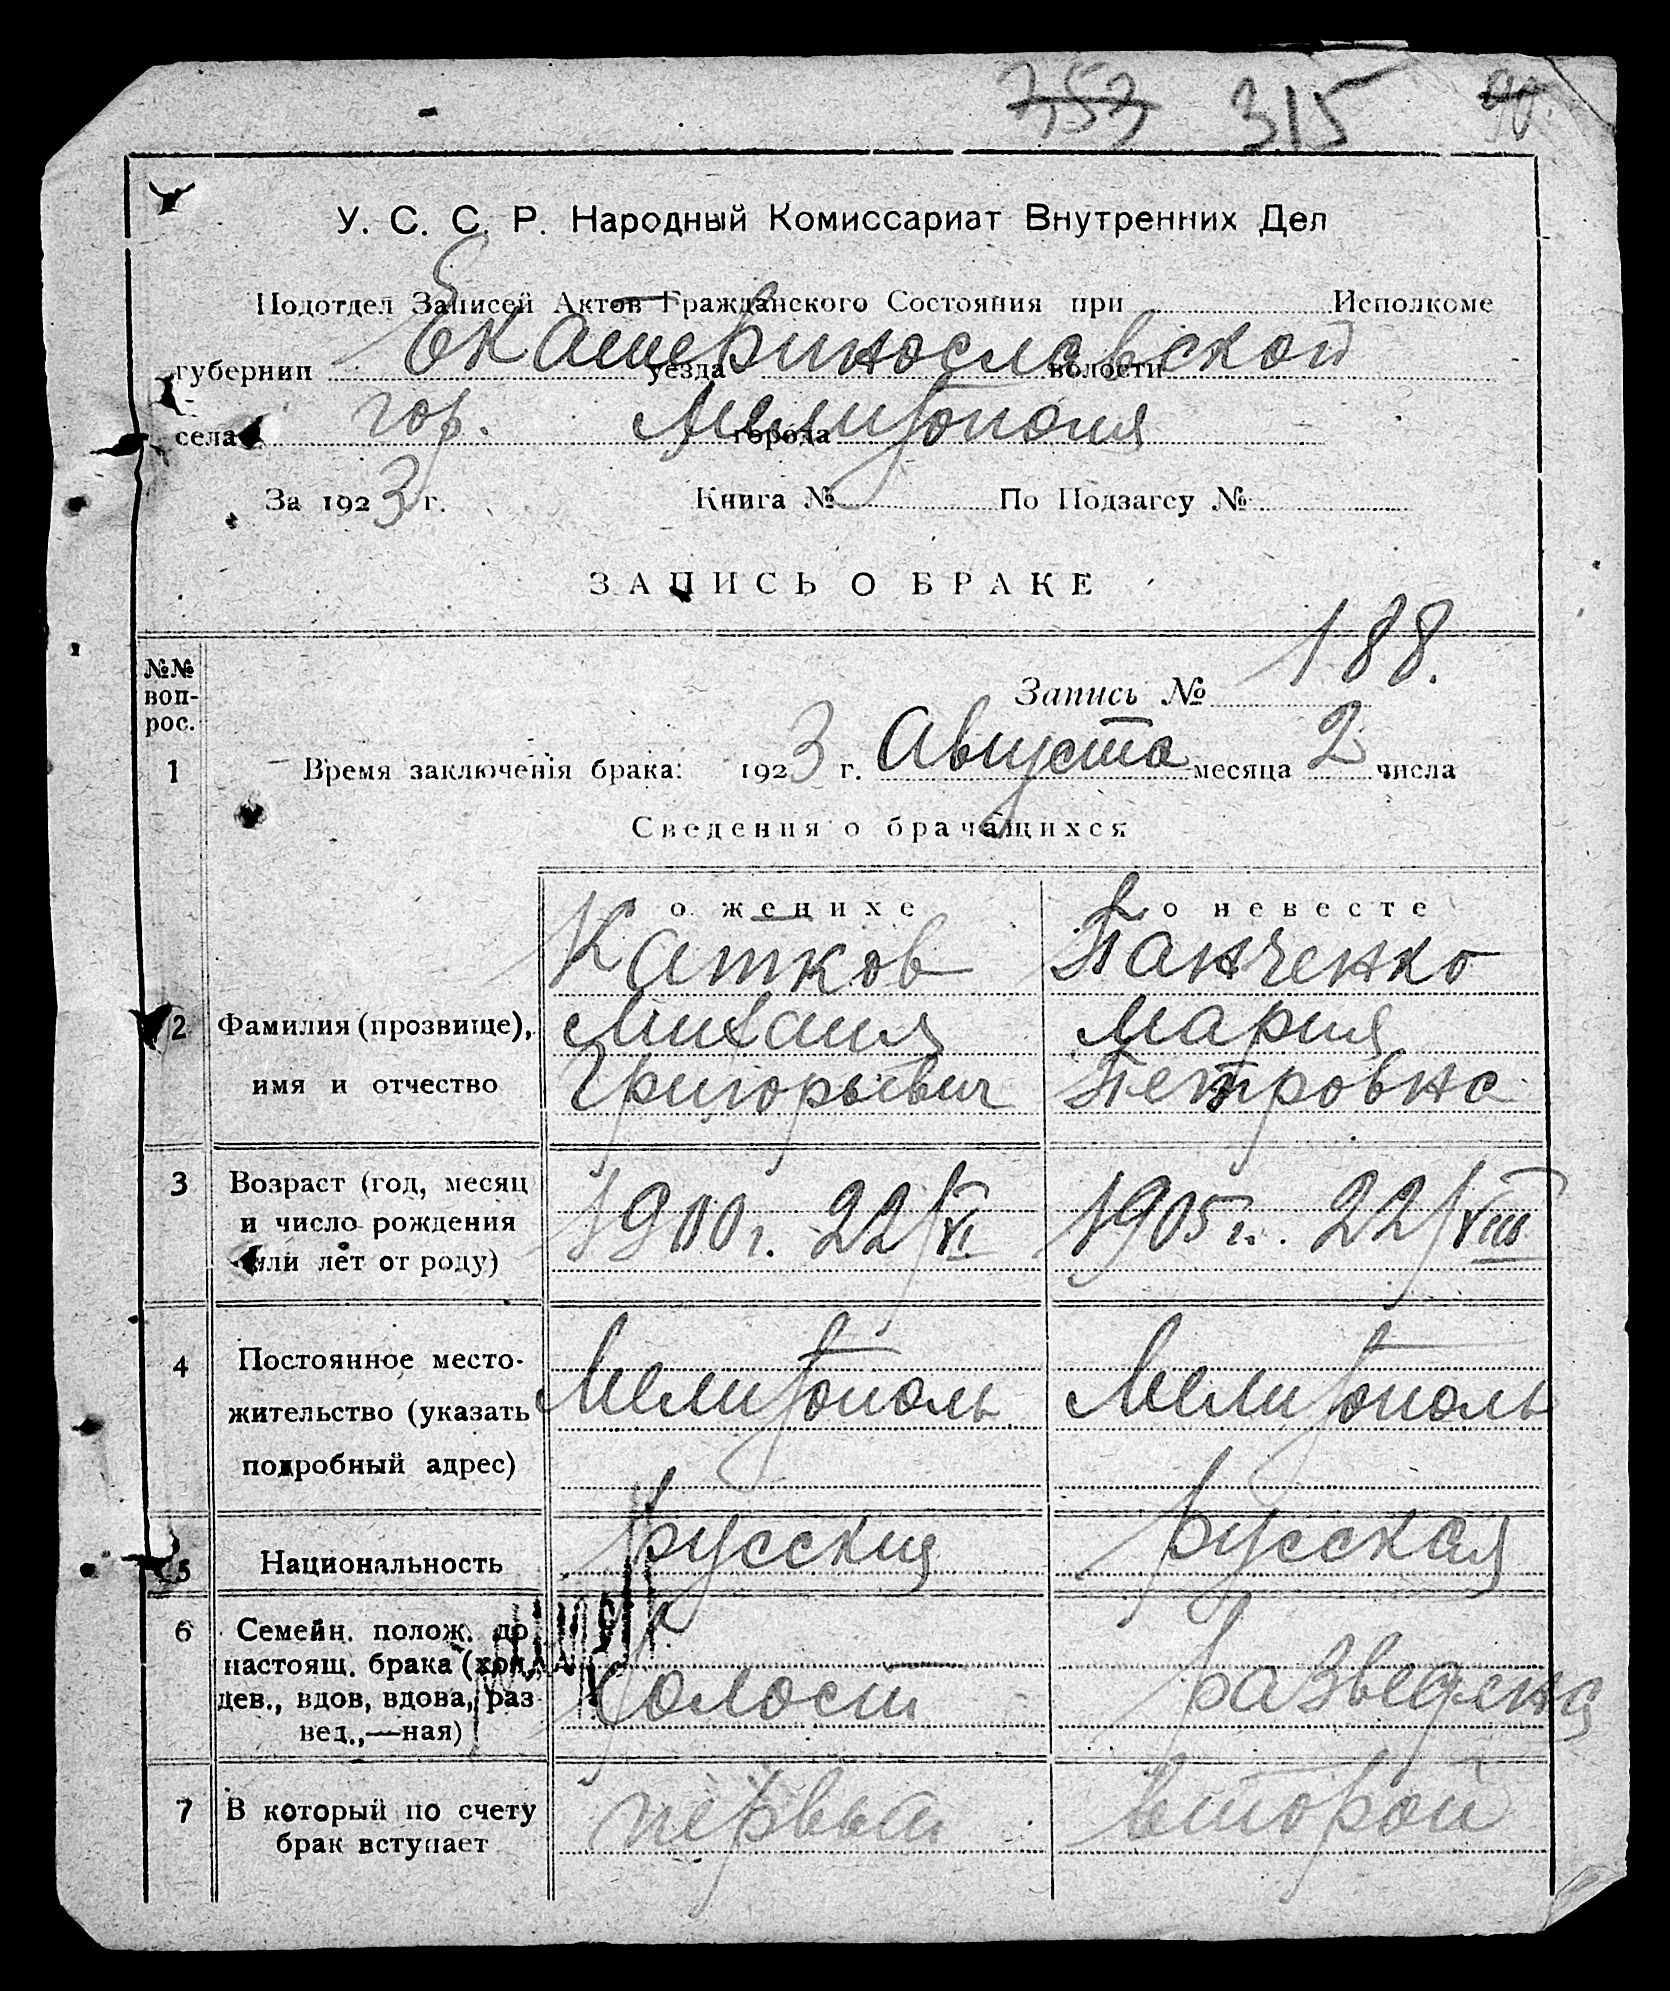 353 315 90.
У. С. С. Р. Народный Комиссариат Внутренних Дел
Подотдел Записей Актов Гражданского Состояния при Исполкоме
губернии Екатеринославской уезда волости
села гор. Мелитополя города
За 1923 г. Книга № По Подзагсу №
ЗАПИСЬ О БРАКЕ
№№ вопрос.
Запись № 188.
1 Время заключенія брака: 1923 г. Августа месяца 2 числа
Сведения о брачащихся
о женихе о невесте
Катков Панченко
2 Фамилия (прозвище), Михаил Мария
имя и отчество Григорьевич Петровна
3 Возраст (год, месяц
и число рождения 1900 г. 22/VI 1905 г. 22/VIII
или лет от роду)
4 Постоянное место-
жительство (указать Мелитополь Мелитополь
подробный адрес)
5 Национальность русский русская
6 Семейн. полож. до
настоящ. брака (хол.,
дев., вдов, вдова, раз- холост разведена
вед.,—ная)
7 В который по счету первый второй
брак вступает